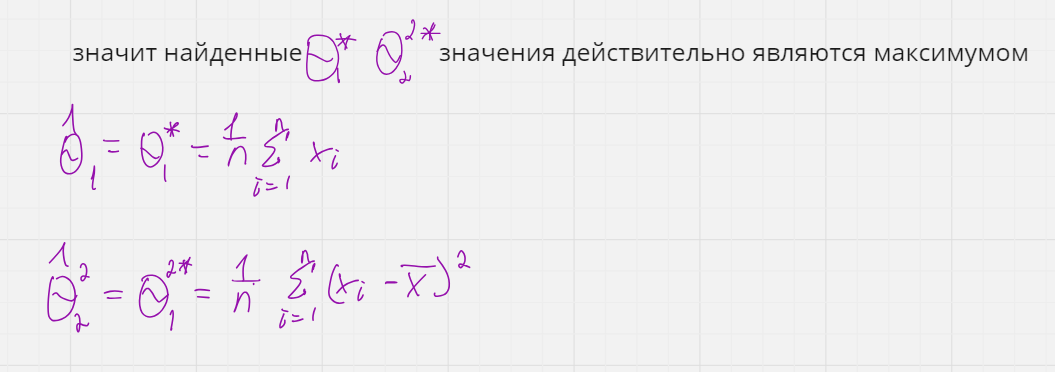 значит найденные θ₁* θ₂²* значения действительно являются максимумом
θ̂₁ = θ₁* = 1/n ∑ᵢ₌₁ⁿ xᵢ
θ̂₂² = θ₁²* = 1/n ∑ᵢ₌₁ⁿ (xᵢ - x̅)²